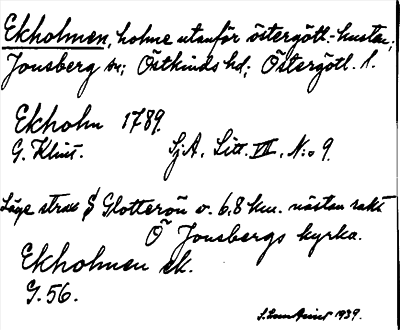 Ekholmen, holme utanför östergötl.-kusten;
Jonsberg sn; Östkinds hd; Östergötl. l.
Ekholm 1789.
G. Klint. SjA. Litt. VII, N:o 9.
Läge strax S Glotterön o. 6,8 km. nästan rakt
Ö Jonsbergs kyrka.
Ekholmen ek.
G. 56.
1939.